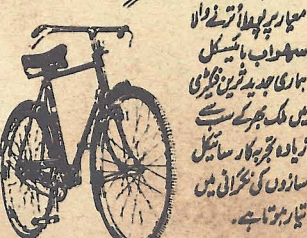 معیار پر پورا اُترنے والا
سہراب بائیسکل
ہماری جدید ترین فیکٹری
میں ملک بھر کے سب سے
زیادہ تجربہ کار سائیکل
سازوں کی نگرانی میں
تیار ہوتا ہے۔